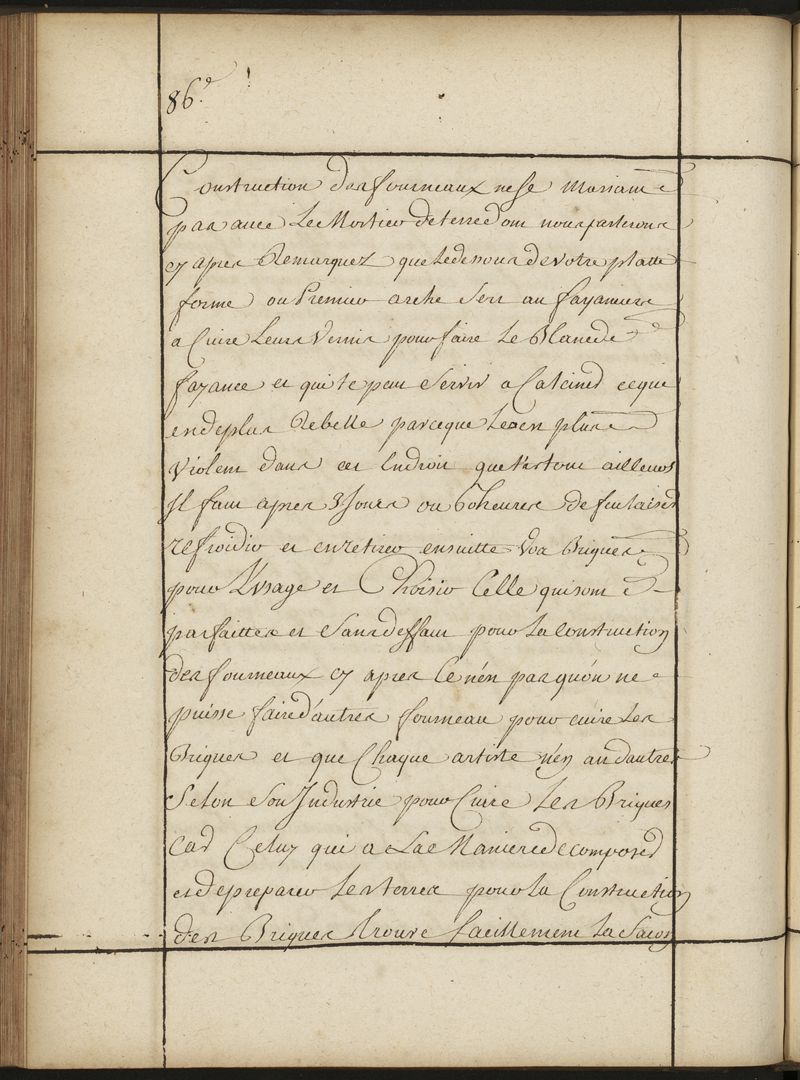 86.e
Construction des fourneaux ne se
pas avec Le Mortier de terre dont nous parlerons
cy apres Remarquez que Le dessous de votre platte
forme ou Premier arche sert au fayancier
a Cuire Leurs Vernis pour faire Le Blanc de
fayance et qui te peut Servir a Calciner ce qui
en de plus Rebelle parceque Le est plus
Violent dans cet Endroit que partout ailleurs
Il faut apres 3 Jours ou 60 heures de feu laisser
refroidir et en retirer ensuitte vos Briques
pour L'usage et Choisir Celle qui sont
parfaittes et Sans deffaut pour La Construction
des fourneaux cy apres Ce n'én pas qu'on ne
puisse faire d'autres fourneau pour cuire Les
Briques et que Chaque artiste n'en ait d'autres
Selon Son Industrie pour Cuire Les Briques
Car Celuy qui a La Maniere de composer
et de preparer Les terres pour La Construction
des Briques trouve facillement La facon